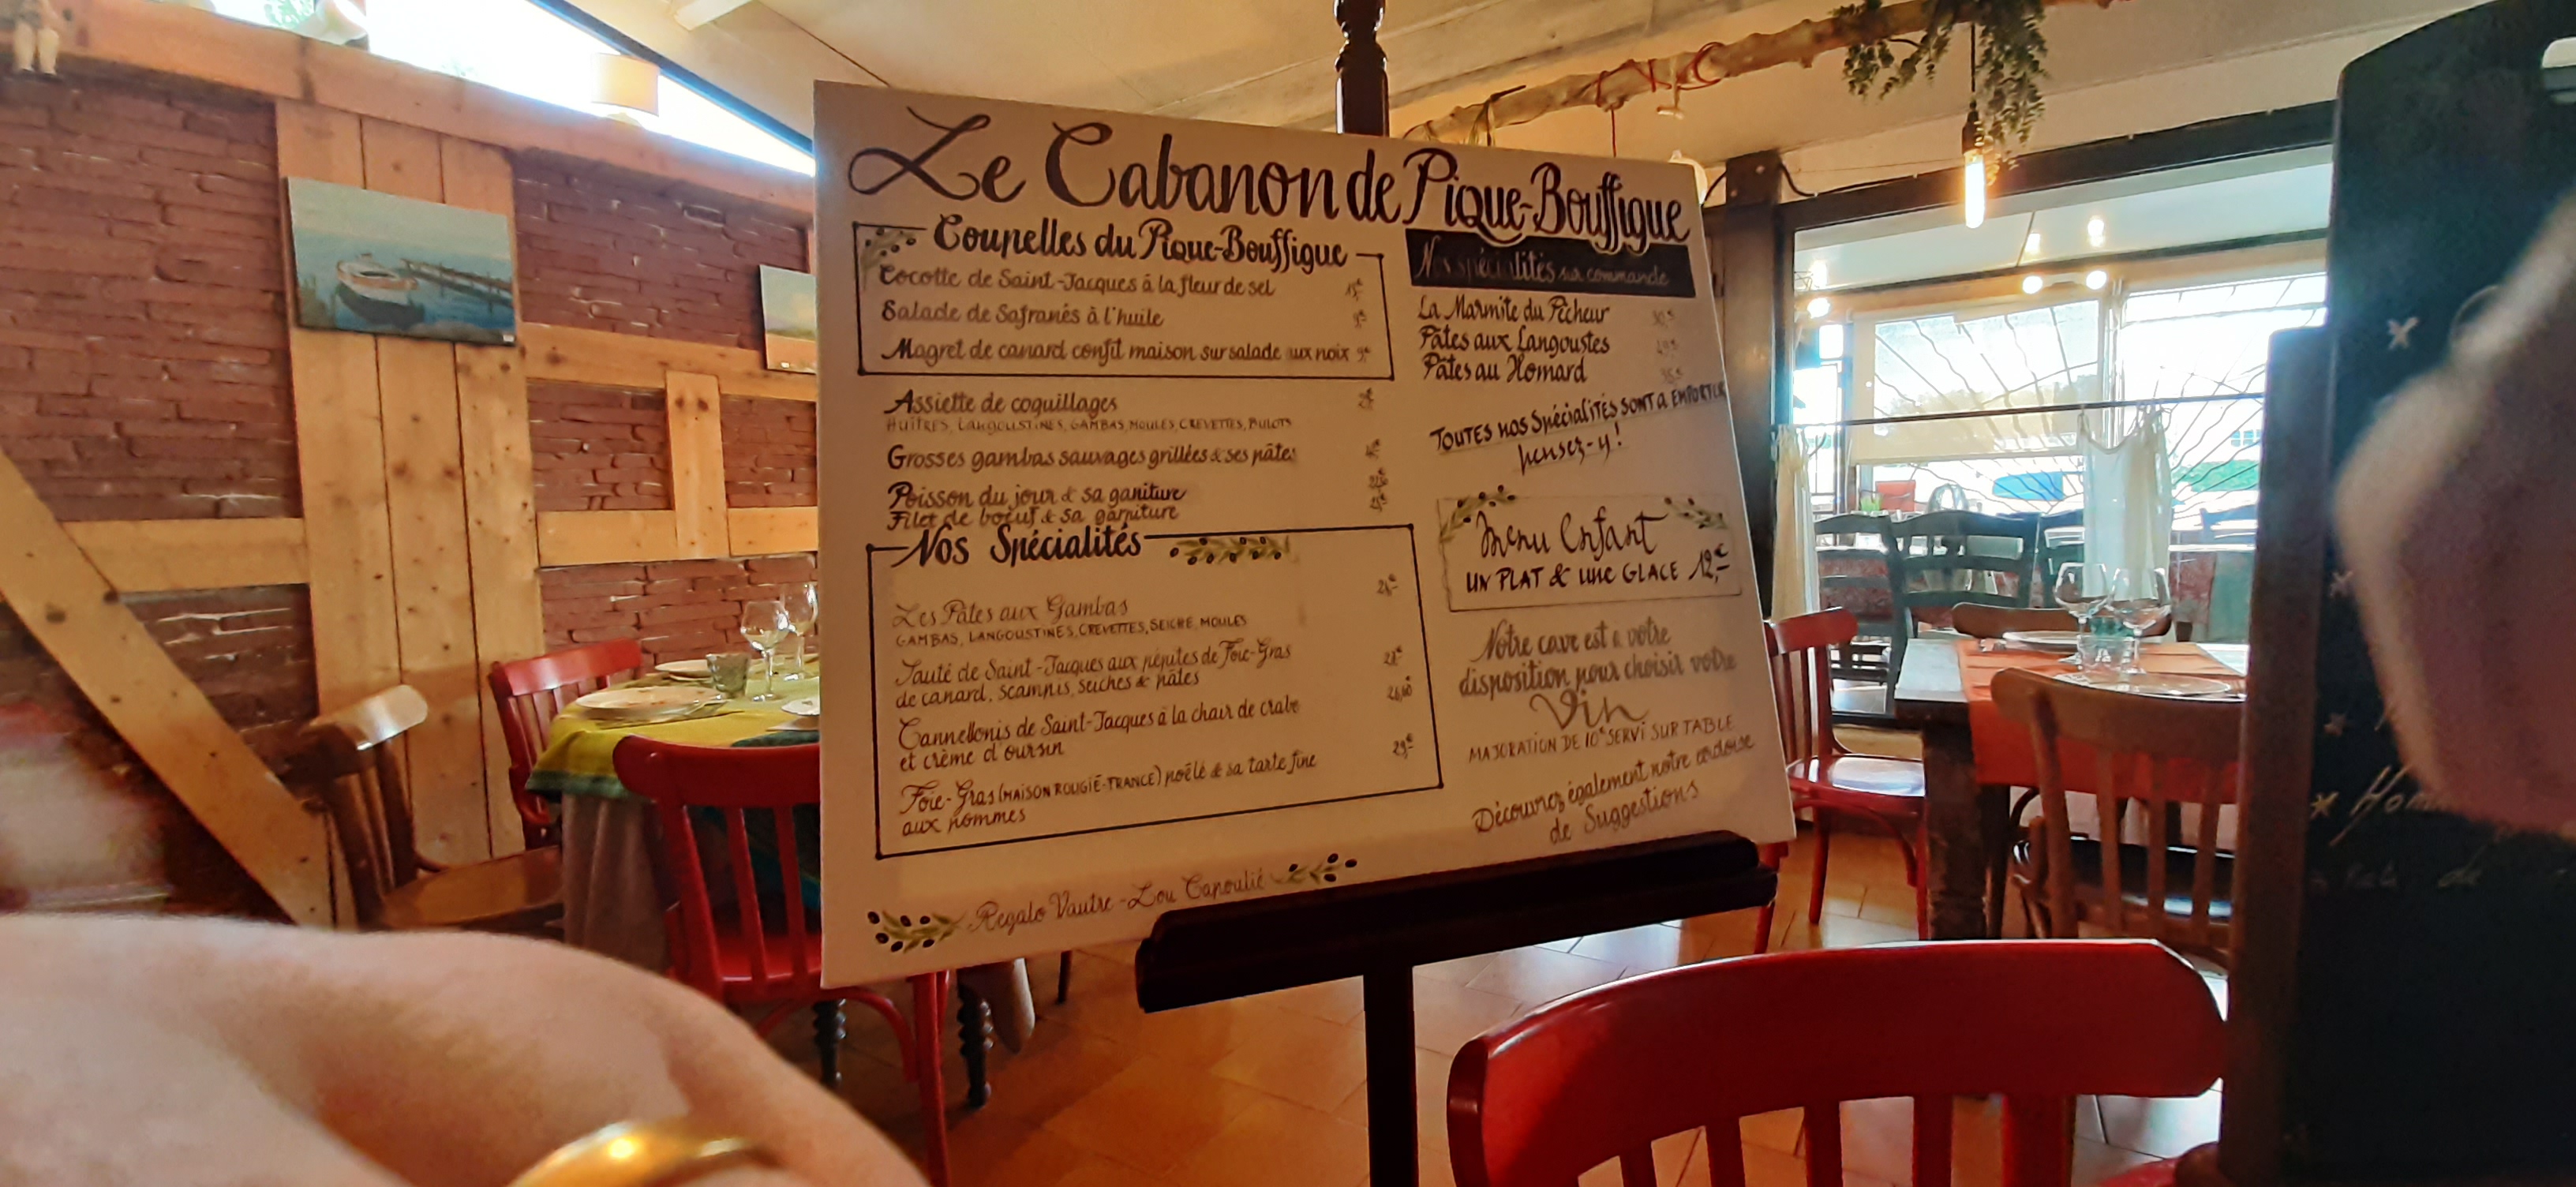 Le Cabanon de Pique-Bouffigue
Coupelles du Pique-Bouffigue
Cocotte de Saint-Jacques à la fleur de sel
Salade de Safranés à l'huile
Magret de canard confit maison sur salade aux noix
Assiette de coquillages
HUITRES, LANGOUSTINES, GAMBAS, MOULES, CREVETTES, BULOTS
Grosses gambas sauvages grillées & ses pâtes
Poisson du jour & sa ganiture
Filet de bœuf & sa garniture
Nos Spécialités
Les Pâtes aux Gambas
GAMBAS, LANGOUSTINES, CREVETTES, SEICHE, MOULES
Sauté de Saint-Jacques aux pépites de Foie-Gras
de canard, scampis, seiches & pâtes
Cannellonis de Saint-Jacques à la chair de crabe
et crème d'oursin
Foie-Gras (MAISON ROUGIÉ-FRANCE) poêlé & sa tarte fine
aux pommes
Regalo Vautre - Lou Capoulié
Nos spécialités sur commande
La Marmite du Pêcheur
Pâtes aux Langoustes
Pâtes au Homard
TOUTES NOS SPÉCIALITÉS SONT A EMPORTER
pensez-y!
Menu Enfant
UN PLAT & UNE GLACE 12,-€
Notre cave est à votre
disposition pour choisir votre
Vin
MAJORATION DE 10€ SERVI SUR TABLE
Découvrez également notre ardoise
de Suggestions